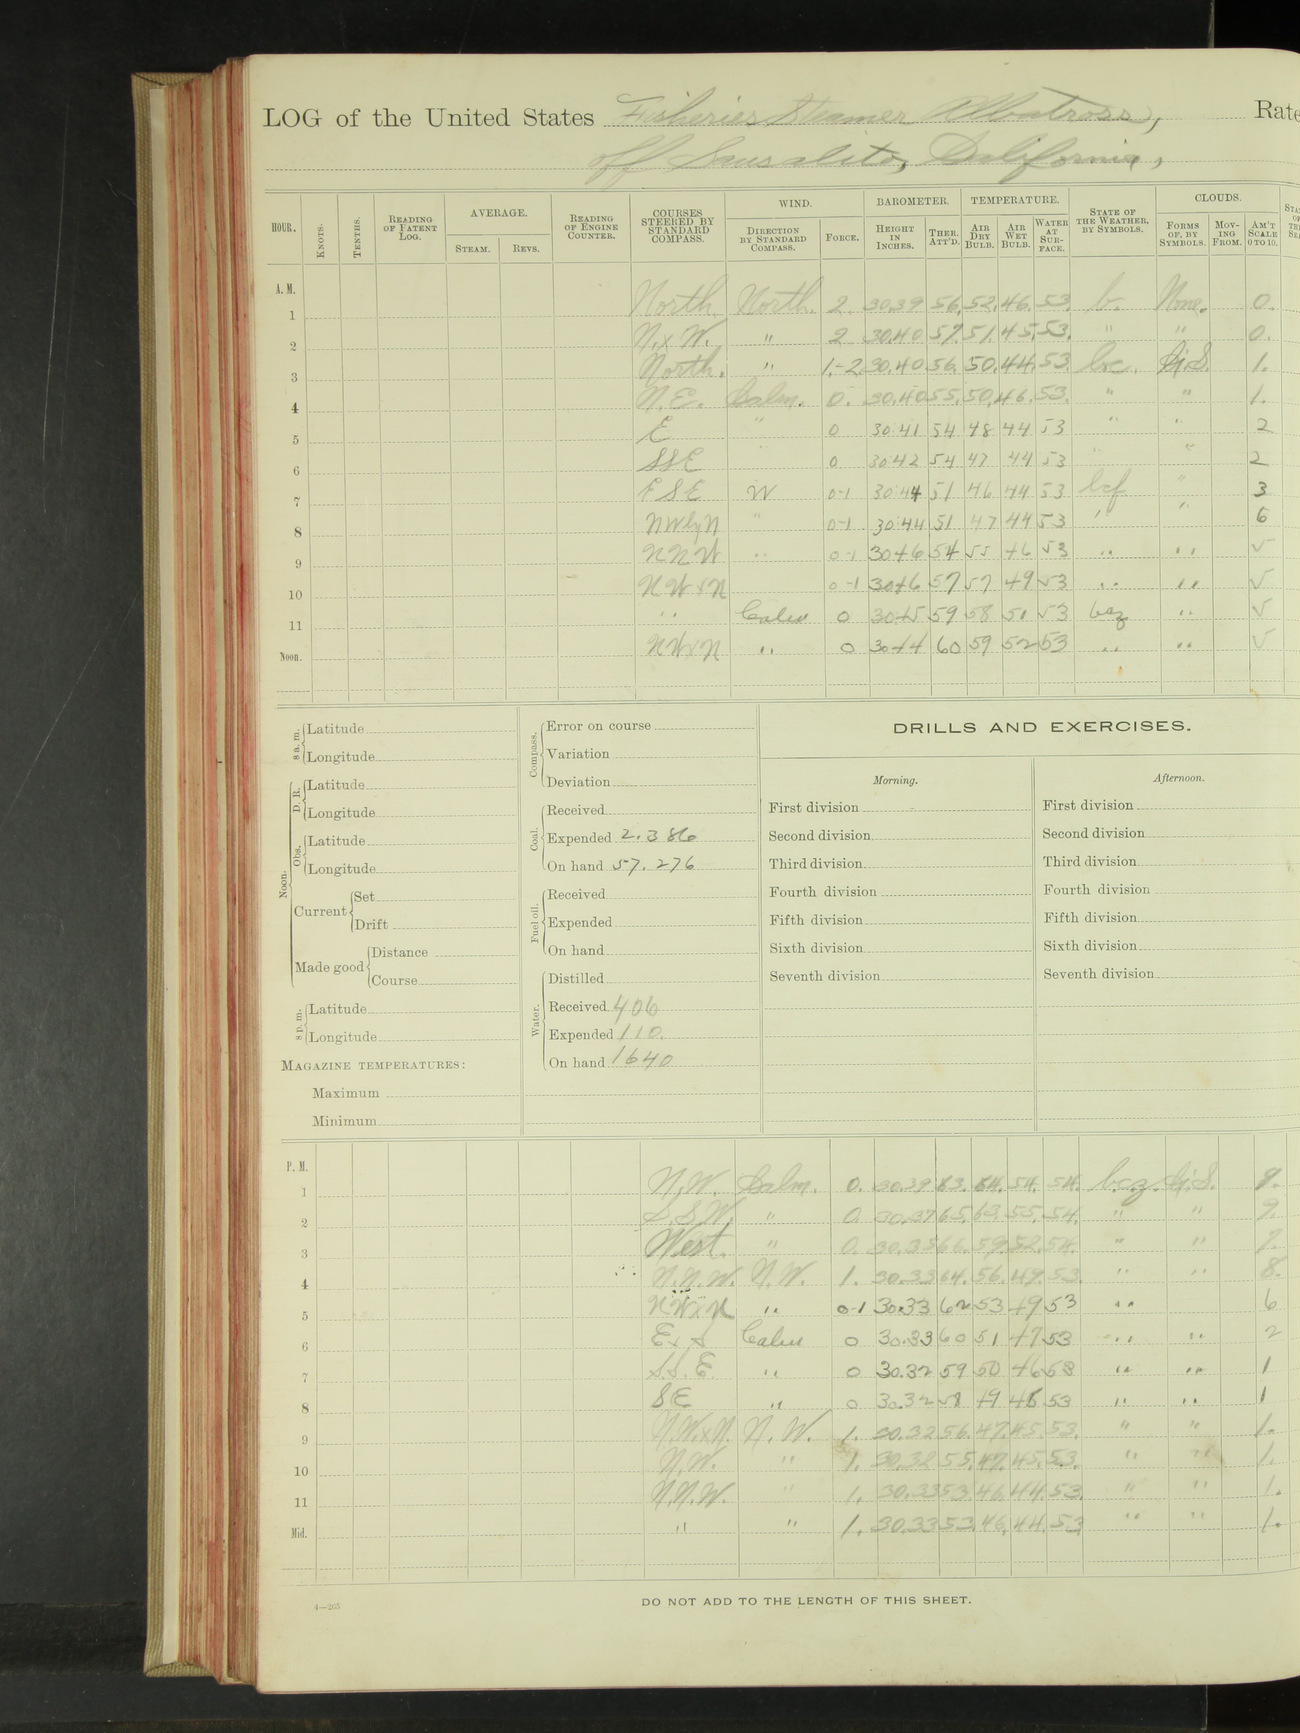 LOG of the United States Fisheries Steamer Albatross, Rate
off Sausalito, California,
HOUR. KNOTS. TENTHS. READING OF PATENT LOG. AVERAGE. STEAM. REVS. READING OF ENGINE COUNTER. COURSES STEERED BY STANDARD COMPASS. WIND. DIRECTION BY STANDARD COMPASS. FORCE. BAROMETER. HEIGHT IN INCHES. THER. ATT'D. TEMPERATURE. AIR DRY BULB. AIR WET BULB. WATER AT SUR-FACE. STATE OF THE WEATHER, BY SYMBOLS. CLOUDS. FORMS OF, BY SYMBOLS. MOV-ING FROM. AM'T SCALE 0 TO 10.
A. M.
1 North. North. 2. 30.39 56. 52. 46. 53. b. None. 0.
2 N.x W. " 2 30.40 57. 51. 45. 53. " " 0.
3 North. " 1.-2. 30.40 56. 50. 44. 53 b.c. Ci.S. 1.
4 N.E. Calm. 0. 30.40 55. 50. 46. 53. " " 1.
5 E " 0 30.41 54 48 44 53 " " 2
6 SSE 0 30.42 54 47 44 53 " " 2
7 ESE W 0-1 30.44 51 46 44 53 bcf " 3
8 NWbyN " 0-1 30.44 51 47 44 53 " " 6
9 NNW " 0-1 30 46 54 55 46 53 " " 5
10 NWxN 0-1 30 46 57 57 49 53 " " 5
11 " Calm 0 30 45 59 58 51 53 bcz " 5
Noon. NWxN " 0 30 44 60 59 52 53 " " 5
8 a. m. Latitude
Longitude
Noon. D. R. Latitude
Longitude
Obs. Latitude
Longitude
Current Set
Drift
Made good Distance
Course
8 p. m. Latitude
Longitude
MAGAZINE TEMPERATURES:
Maximum
Minimum
Compass. Error on course
Variation
Deviation
Coal. Received
Expended 2.386
On hand 57.276
Fuel oil. Received
Expended
On hand
Water. Distilled
Received 406
Expended 110.
On hand 1640
DRILLS AND EXERCISES.
Morning. Afternoon.
First division First division
Second division Second division
Third division Third division
Fourth division Fourth division
Fifth division Fifth division
Sixth division Sixth division
Seventh division Seventh division
P. M.
1 N.W. Calm. 0. 30.39 63. 64. 54. 54. b.c.z. Ci.S. 9.
2 S.S.W. " 0. 30.37 65. 63. 55. 54. " " 9.
3 West. " 0. 30.35 66. 59. 52. 54. " "
4 N.N.W. N.W. 1. 30.33 64. 56. 49. 53. " " 8.
5 NWxN " 0-1 30.33 62 53 49 53 " 6
6 ExS Calm 0 30.33 60 51 47 53 " " 2
7 S.S.E. " 0 30.32 59 50 46 53 " " 1
8 SE " 0 30.32 58 49 46 53 " " 1
9 N.W.xN. N.W. 1. 30.32 56. 47. 45. 53. " " 1.
10 N.W. " 1. 30.32 55. 47. 45. 53. " " 1.
11 N.N.W. " 1. 30.33 53. 46. 44. 53. " " 1.
Mid. " " 1. 30.33 53. 46. 44. 53 " " 1.
4—265
DO NOT ADD TO THE LENGTH OF THIS SHEET.